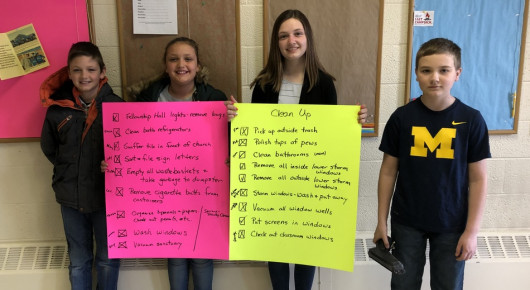 Fellowship Hall lights: remove bugs
Clean both refrigerators
Gaffer tix in front of church
Sort & file sign letters
Empty all wastebaskets &
take garbage to dumpster
Remove cigarette butts from
containers
Organize hymnals + papers
Check out pencils, etc.
Wash windows
Vacuum sanctuary
Clean Up
Pick up outside trash
Polish tops of pews
Clean bathrooms
Remove all inside lower storm
windows
Remove all outside lower storm
windows
Storm windows - wash & put away
Vacuum all window wells
Put screens in windows
Check out classroom windows
M